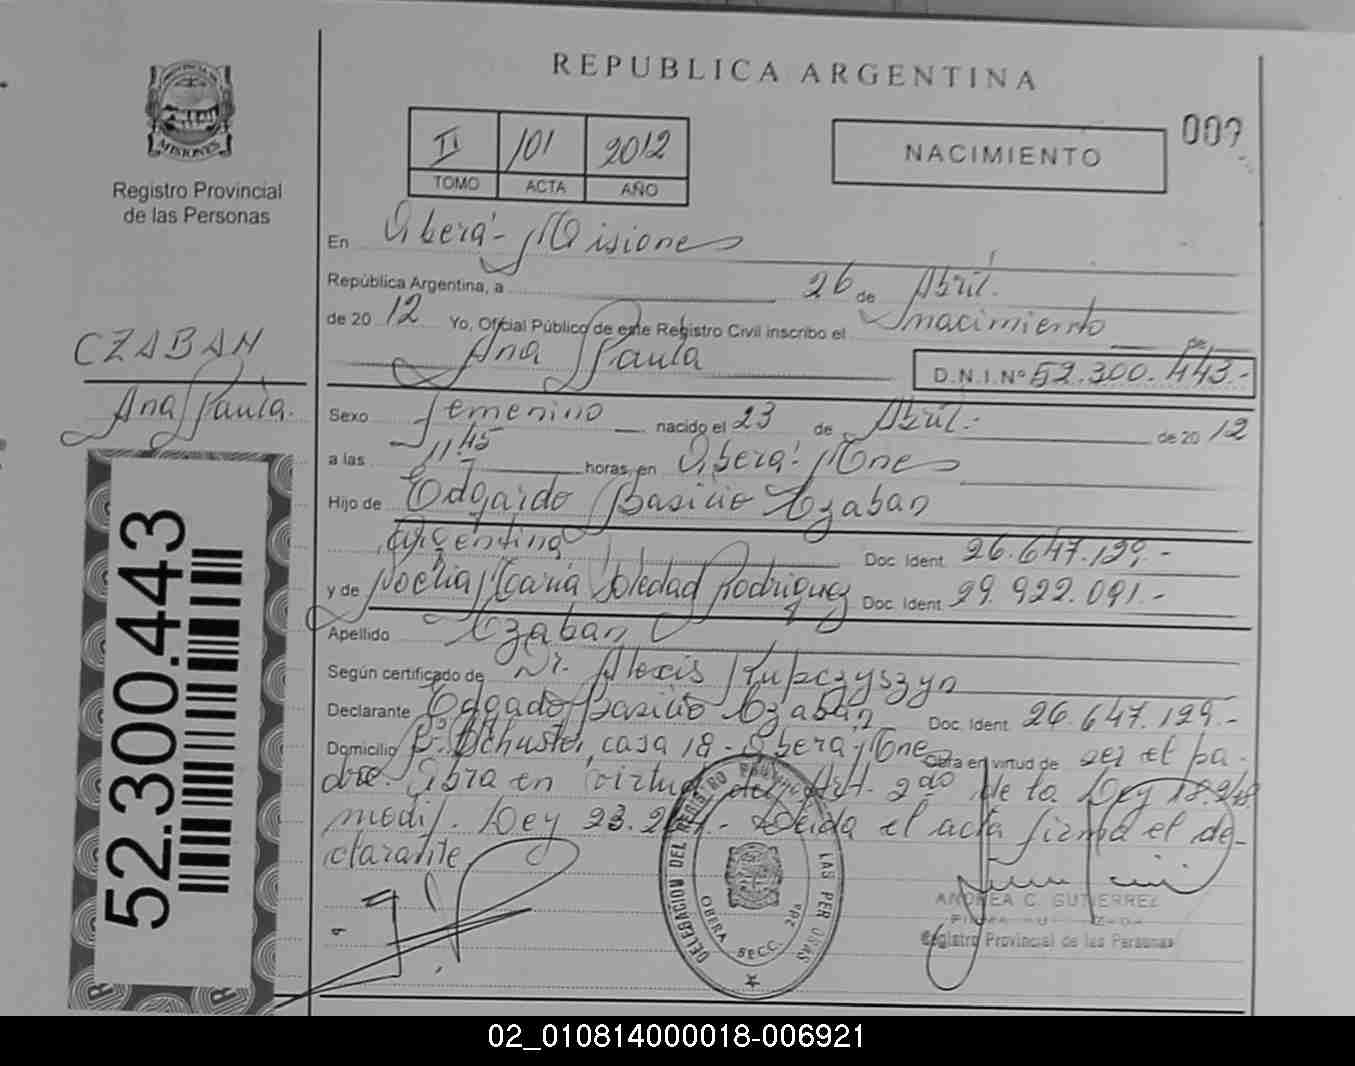 REPUBLICA ARGENTINA
MISIONES
Registro Provincial
de las Personas
II 101 2012
TOMO ACTA AÑO
NACIMIENTO
009
En Oberá - Misiones
República Argentina, a 26 de Abril.
de 20 12 Yo, Oficial Público de este Registro Civil inscribo el nacimiento de
Ana Paula D.N.I. Nº 52.300.443.-
CZABAN
Ana Paula.
Sexo femenino nacido el 23 de Abril.- de 20 12
a las 11,45 horas, en Oberá - Mnes
Hijo de Edgardo Basilio Czaban
Argentina Doc. Ident. 26.647.129.-
y de Noelia María Soledad Rodriguez Doc. Ident. 29.922.091.-
Apellido Czaban
Según certificado de Dr. Alexis Kupczyszyn
Declarante Edgado Basilio Czaban Doc. Ident. 26.647.129.-
Domicilio Bº Schuster, casa 18 - Oberá Mnes Obra en virtud de ser el pa-
dre. Obra en virtud del Art. 2do de la Ley 18.248
modif. Ley 23. - Leida el acta firma el de-
clarante.
52.300.443
DELEGACION DEL REGISTRO PROVINCIAL LAS PERSONAS
OBERA SECC. 2da
ANDREA C. GUTIERREZ
FIRMA AUTORIZADA
Registro Provincial de las Personas
02_010814000018-006921